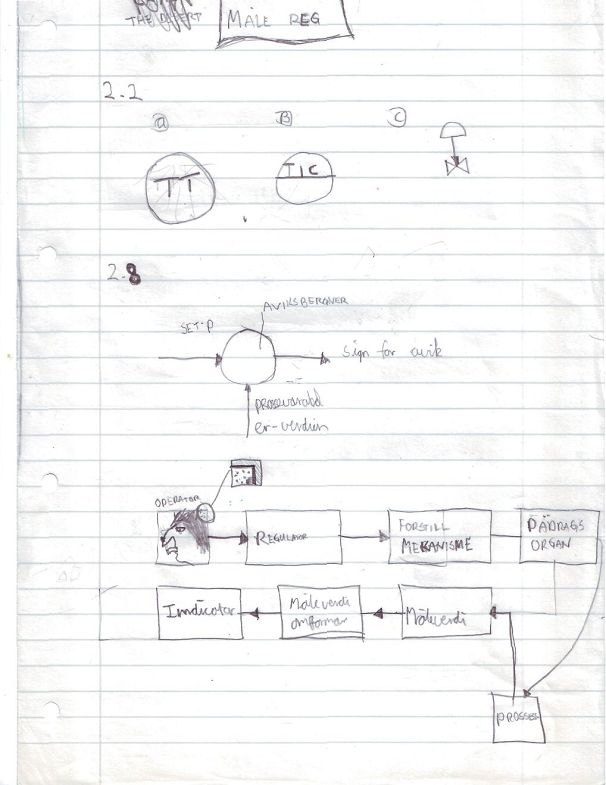 THE
MÅLE REG
2.2
a
B
C
TT
TIC
2.8
AVIKSBERGNER
SET-P
Sign for avik
er-verdien
OPERATOR
REGULATOR
FORSTILL
MEKANISME
PÅDRAGS
ORGAN
Inndicator
Måleverdi
omformer
Måleverdi
PROSSES